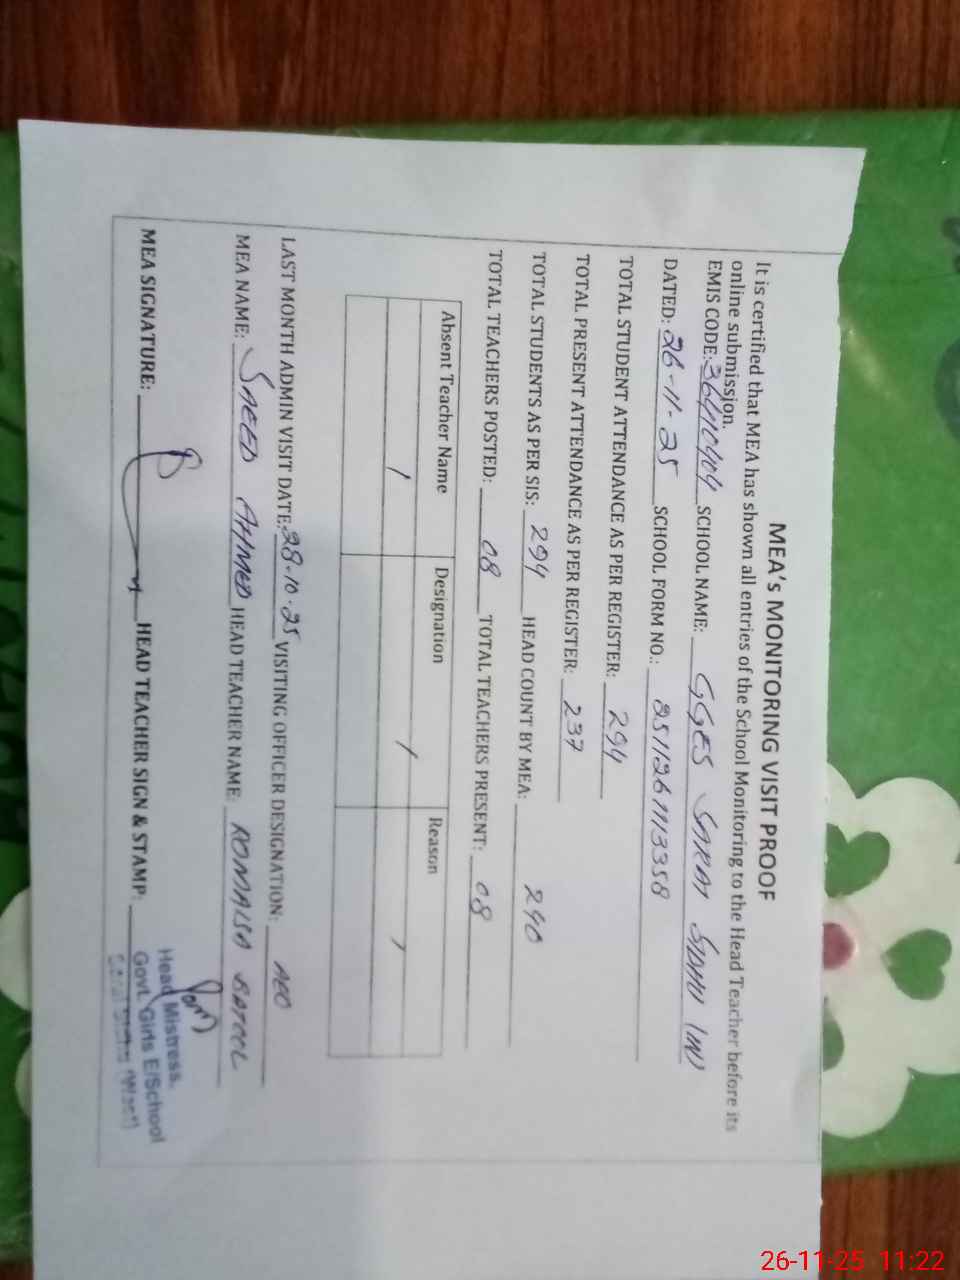 MEA's MONITORING VISIT PROOF
It is certified that MEA has shown all entries of the School Monitoring to the Head Teacher before its
online submission.
EMIS CODE: 36410404 SCHOOL NAME: GGES SARAI SIDHU (W)
DATED: 26-11-25 SCHOOL FORM NO.: 2511261113358
TOTAL STUDENT ATTENDANCE AS PER REGISTER: 294
TOTAL PRESENT ATTENDANCE AS PER REGISTER: 237
TOTAL STUDENTS AS PER SIS: 294 HEAD COUNT BY MEA: 240
TOTAL TEACHERS POSTED: 08 TOTAL TEACHERS PRESENT: 08
Absent Teacher Name Designation Reason
/ / /
LAST MONTH ADMIN VISIT DATE: 28-10-25 VISITING OFFICER DESIGNATION: AEO
MEA NAME: SAEED AHMED HEAD TEACHER NAME: ROMAISA BATOOL
MEA SIGNATURE: HEAD TEACHER SIGN & STAMP:
Head Mistress.
Govt. Girls E/School
Sarai Sidhu (West)
26-11-25 11:22